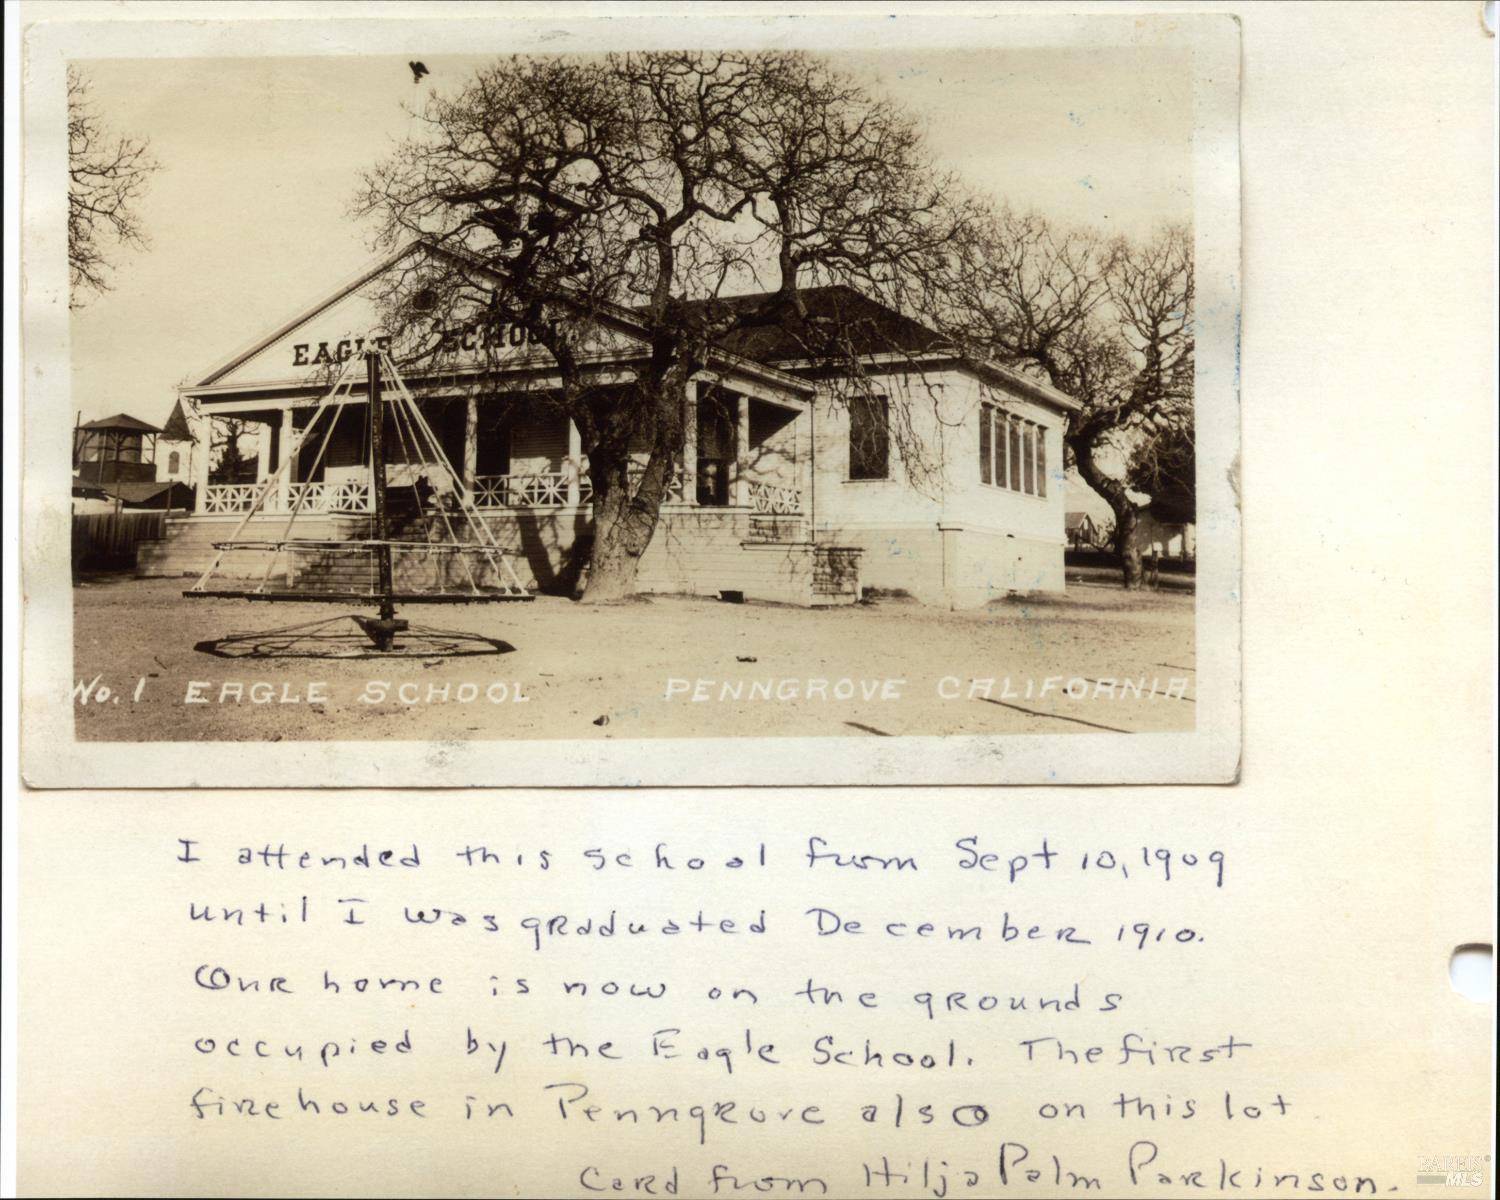 EAGLE SCHOOL.
No. 1 EAGLE SCHOOL PENNGROVE CALIFORNIA
I attended this school from Sept 10, 1909
until I was graduated December 1910.
Our home is now on the grounds
occupied by the Eagle School. The first
firehouse in Penngrove also on this lot.
Card from Hilja Palm Parkinson.
BAREIS® MLS